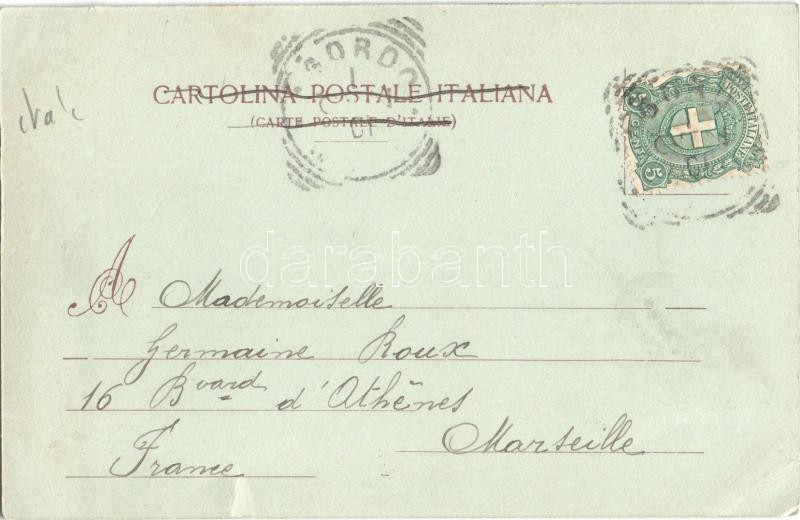 CARTOLINA POSTALE ITALIANA
(CARTE POSTALE D'ITALIE)
POSTE ITALIANE
CEN. 5
5
darabanth
A Mademoiselle
Germaine Roux
16 Bvard d'Athênes
Marseille
France